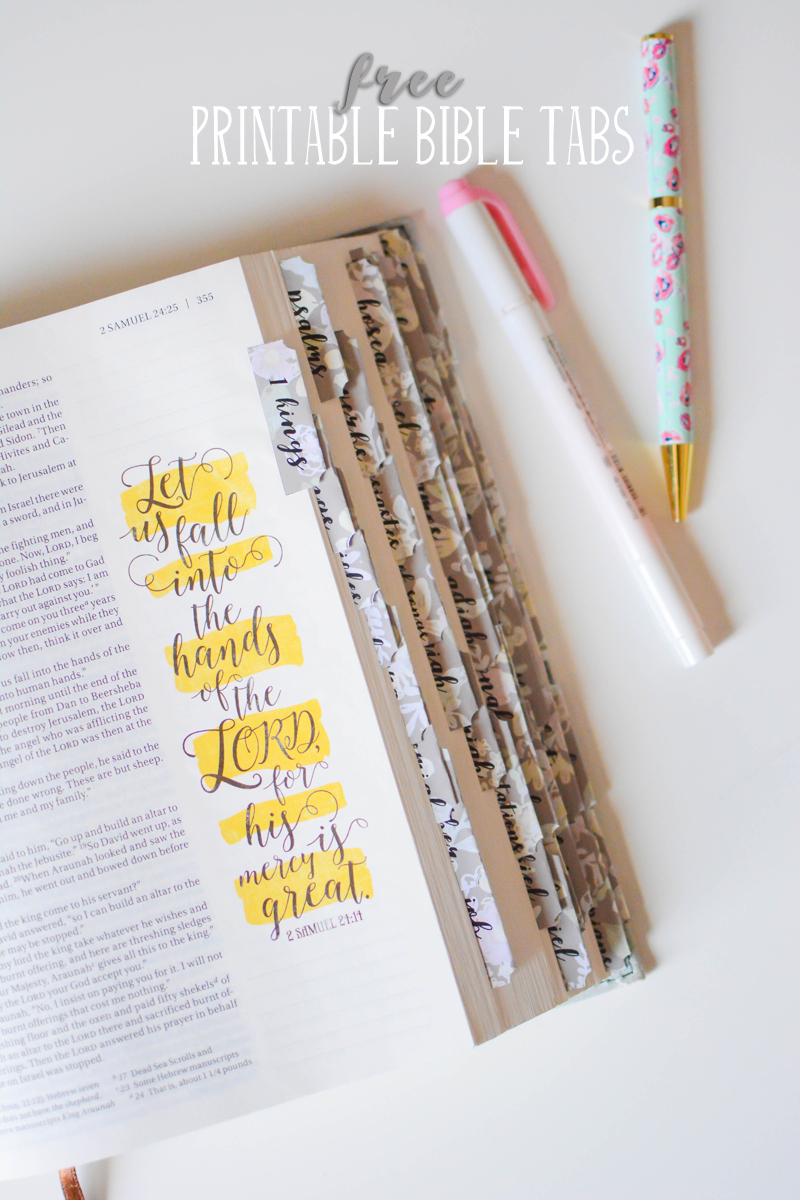 free
PRINTABLE BIBLE TABS
2 SAMUEL 24:25 | 355
manders; so
e town in the
Gilead and the
d Sidon. Then
livites and Ca-
ah.
k to Jerusalem at
n Israel there were
a sword, and in Ju-
he fighting men, and
one. Now, LORD, I beg
y foolish thing."
LORD had come to Gad
hat the LORD says: I am
arry out against you."
come on you three years
n your enemies while they
ow then, think it over and
us fall into the hands of the
nto human hands."
morning until the end of the
people from Dan to Beersheba
to destroy Jerusalem, the LORD
he angel who was afflicting the
ngel of the LORD was then at the
king down the people, he said to the
e done wrong. These are but sheep.
me and my family."
aid to him, "Go up and build an altar to
nah the Jebusite." 19So David went up, as
ad. 20When Araunah looked and saw the
him, he went out and bowed down before
the king come to his servant?"
avid answered, "so I can build an altar to the
may be stopped."
my lord the king take whatever he wishes and
burnt offering, and here are threshing sledges
r Majesty, Araunah gives all this to the king."
y the LORD your God accept you."
raunah, "No, I insist on paying you for it. I will not
burnt offerings that cost me nothing."
shing floor and the oxen and paid fifty shekels d of
lt an altar to the LORD there and sacrificed burnt of-
rings. Then the LORD answered his prayer in behalf
e on Israel was stopped.
Hebrew seven
does not have the shepherd.
manuscripts King Araunah
b 17 Dead Sea Scrolls and
c 23 Some Hebrew manuscripts
d 24 That is, about 1 1/4 pounds
Let
us fall
into
the
hands
of the
LORD,
for
his
mercy is
great.
2 SAMUEL 24:14
1 kings
psalms
hosea
job